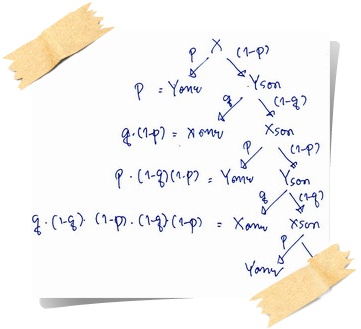 X
p (1-p)
p = Yonur Yson
q (1-q)
q.(1-p) = Xonur Xson
p (1-p)
p.(1-q)(1-p) = Yonur Yson
q (1-q)
q.(1-q).(1-p).(1-q)(1-p) = Xonur Xson
p
Yonur